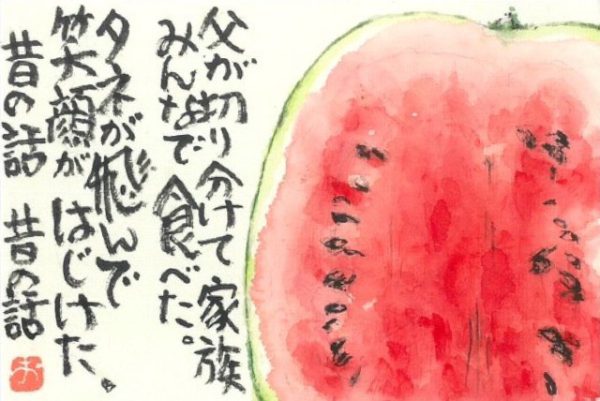 父が切り分けて家族
みんなで食べた。
タネが飛んで
笑顔がはじけた、
昔の話 昔の話